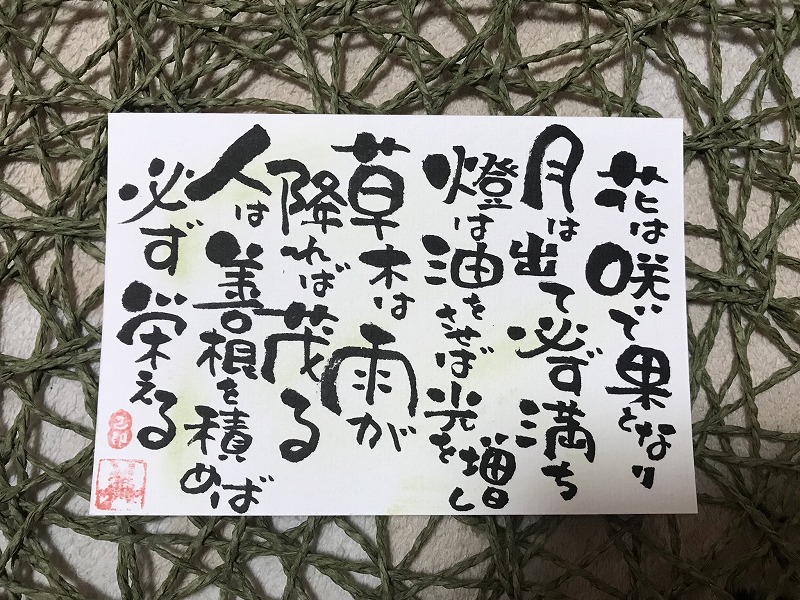 花は咲いて果となり
月は出て必ず満ち
燈は油をさせば光を増し
草木は雨が
降れば茂る
人は善根を積めば
必ず栄える